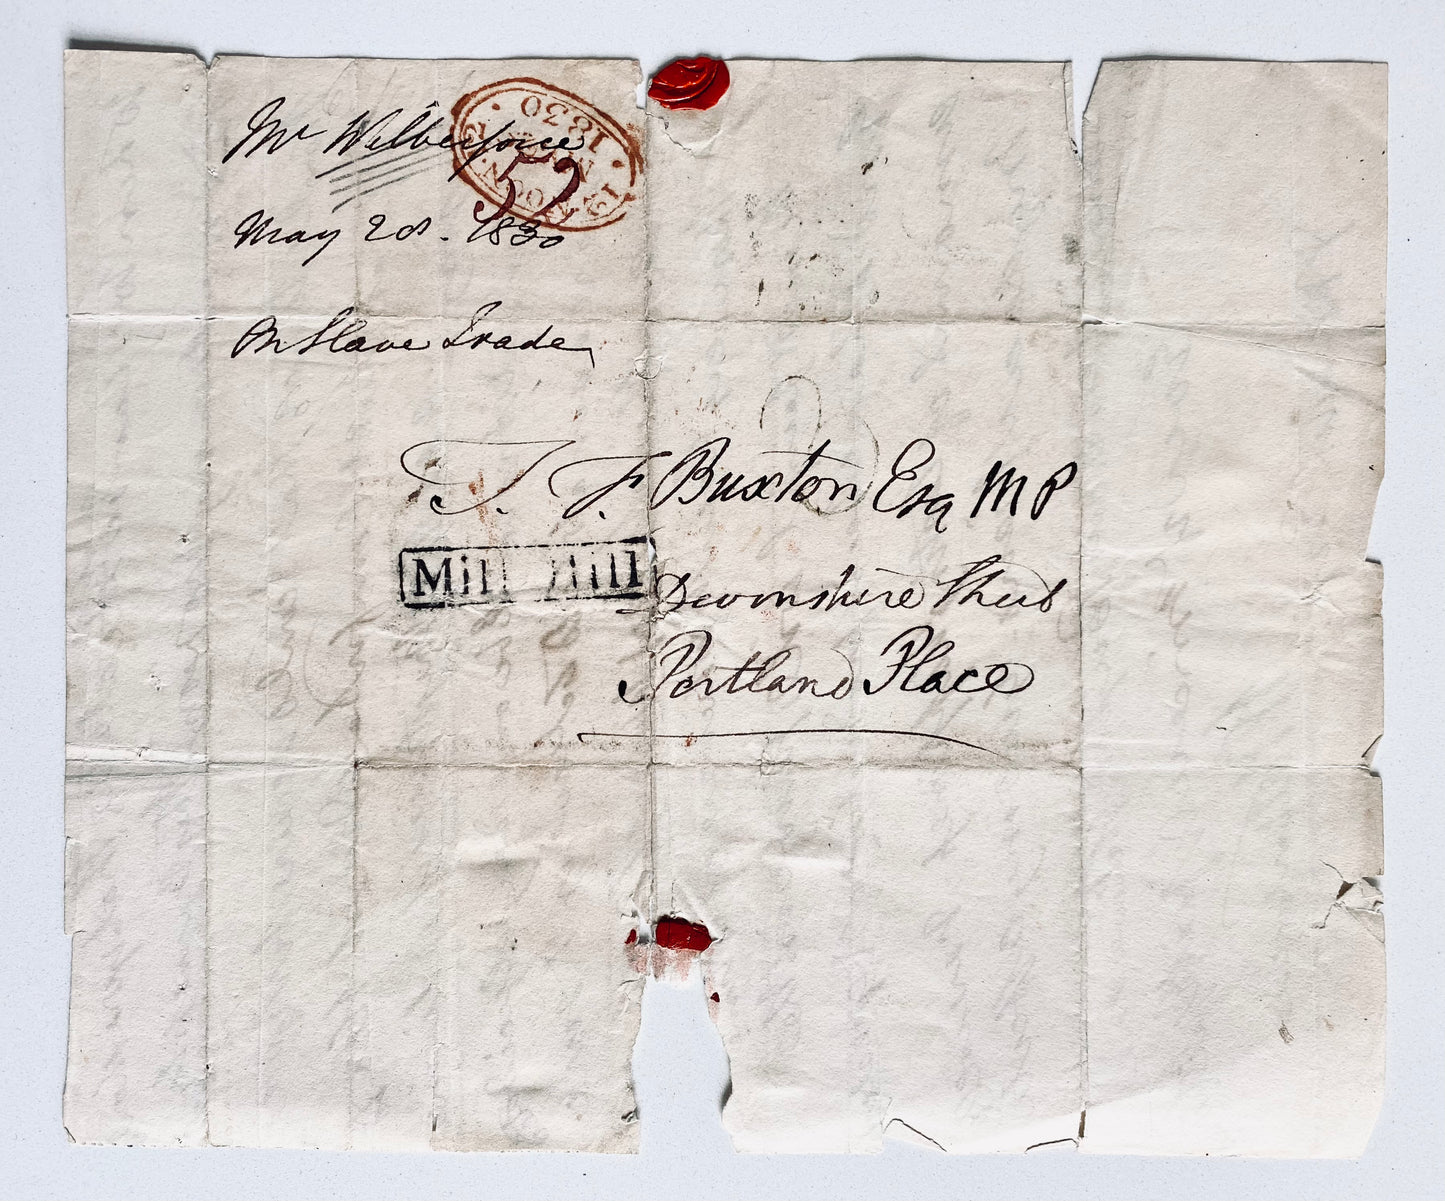 Mr Wilberforce
May 28. 1830
On Slave Trade
1830
NOON
T. F. Buxton Esq MP
Mill Hill
Devonshire Street
Portland Place